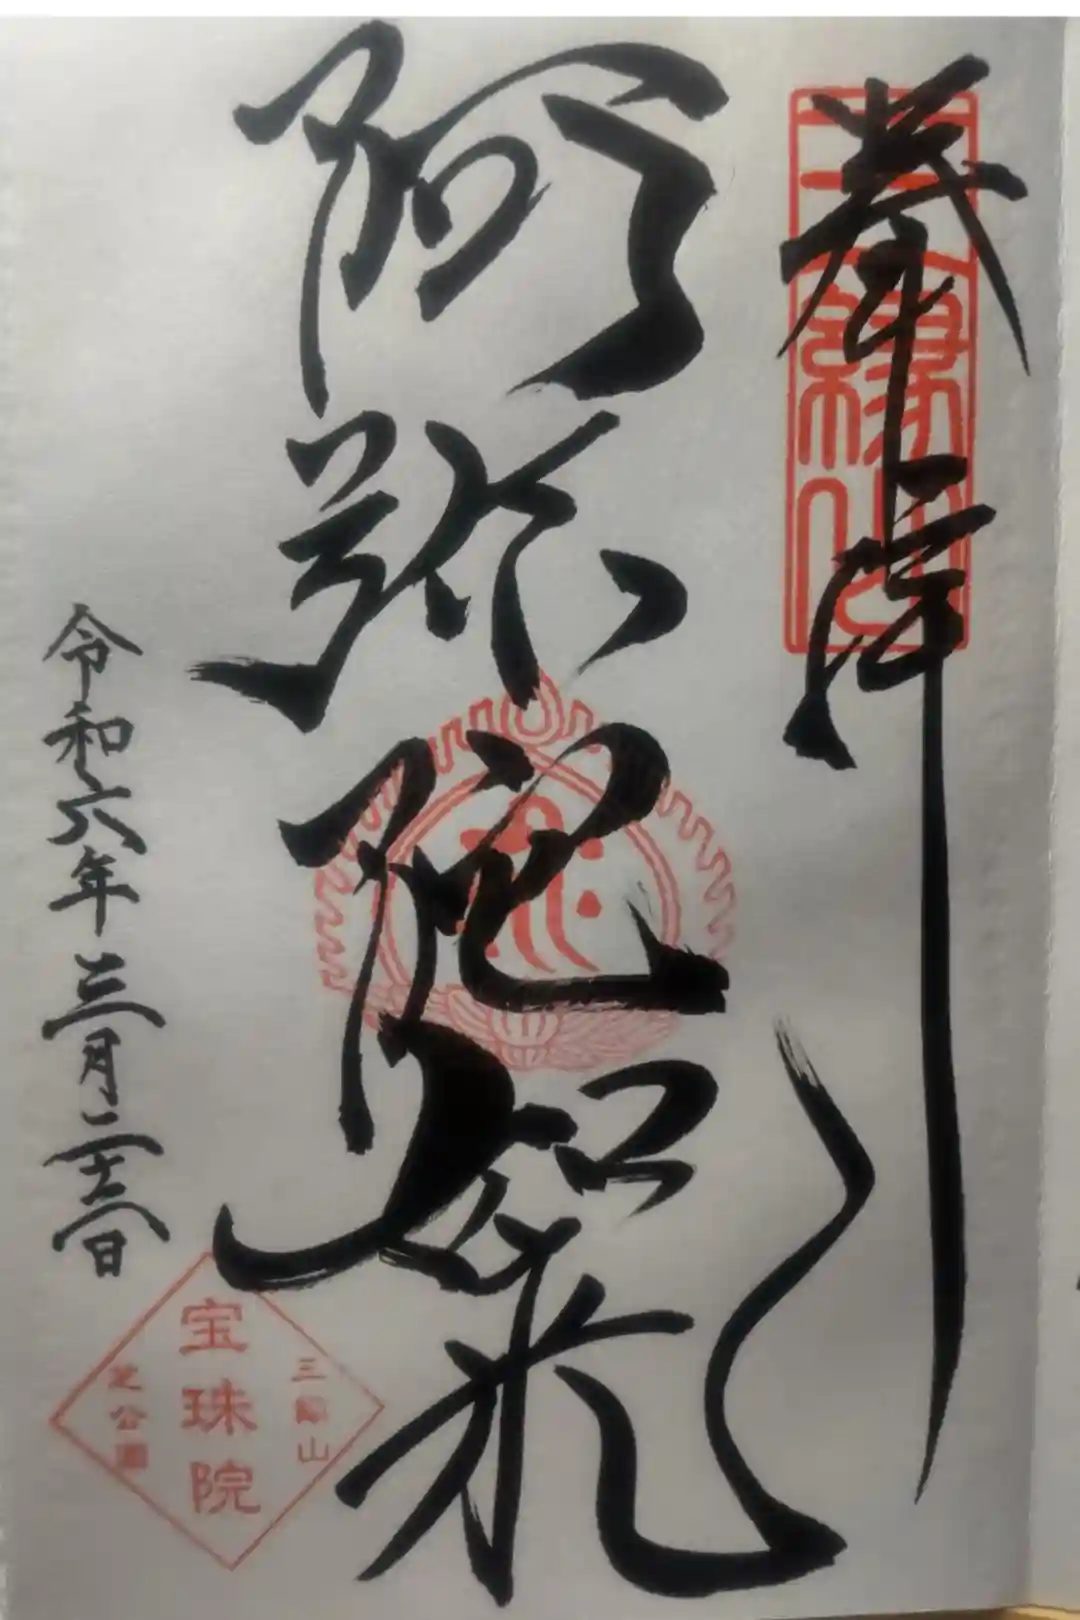 奉拝
三縁山
阿弥陀如来
令和六年三月二十三日
三縁山
宝珠院
芝公園